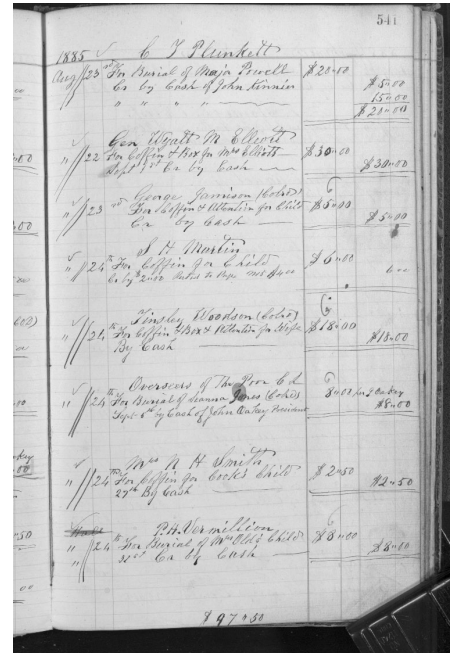 541
1885 C T Plunkett
Aug 23rd For Burial of Major Powell $20.00
Cr by Cash of John Kinnier $5.00
" " " " 15.00
$20.00
Gen Wyatt M Elliott
" 22 For Coffin & Box for Mrs Elliott $30.00
Sept 1st Cr by Cash $30.00
George Jamison (Cold)
" 23rd For Coffin & Attention for Child $5.00
Cr by Cash $5.00
S H Martin
" 24th For Coffin for Child $6.00
Cr by $2.00 6.00
Tinsley Woodson (Cold)
" 24th For Coffin & Box & Attention for Wife $18.00
By Cash $18.00
Overseers of The Poor C L
" 24th For Burial of Jones (Cold) 8.00
Sept 8th by Cash of John Oakey President $8.00
Mrs N H Smith
" 24th For Coffin for Cook's Child $2.50
27th By Cash $2.50
P. H. Vermillion
" 24th For Burial of Mrs Old's Child $8.00
" 31st Cr by Cash $8.00
$97.50